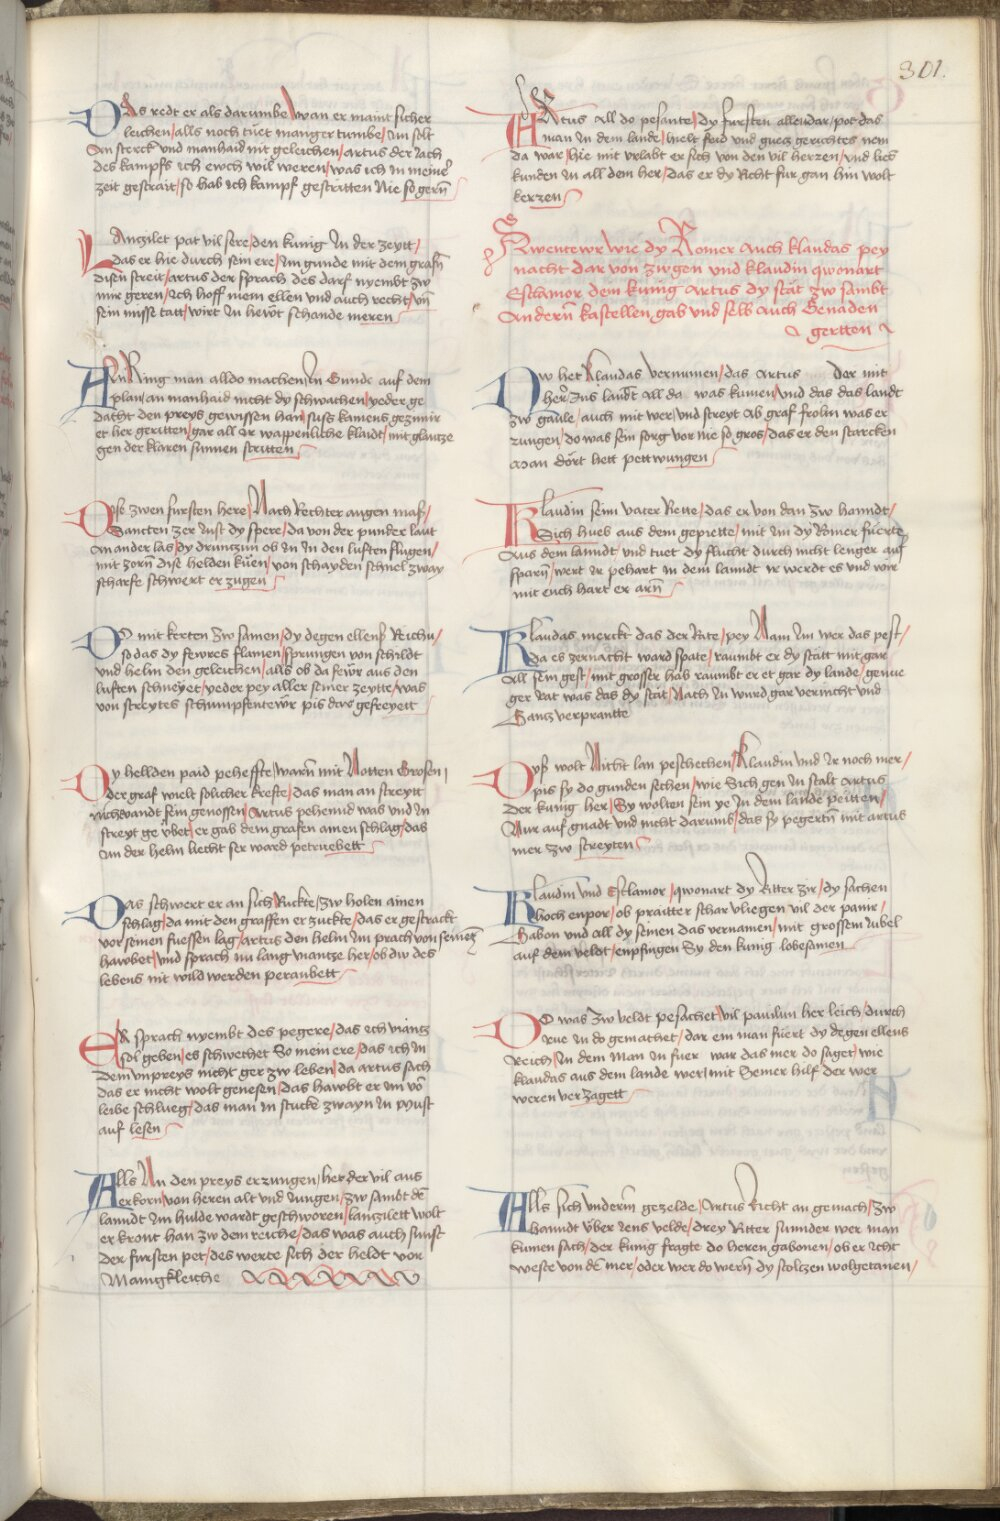 301.
Das redt er als darumbe / wan er maint sicher
leichen / alls noch tuet manger tumbe / im solt
an sterck und manhait nit geleichen / artus der iach
des kampfs ich euch wil weren / was ich in meiner
zeit gestrait / so hab ich kampf gestritten nie so gern
Lantzilet pat vil sere / den kunig in der zeytt /
das er hie durch sein ere / im gunde mit dem grafn
disen streit / artus der sprach des darf nyembt zw
mir geren / ich hoff mein ellen vnd auch recht / vn
sein misse tatt / wirt in hewt schande meren
Ain Ring man alldo machen / in Gunde auf dem
plan / an manhaid nicht dy schwachen / yeder ge
dacht den preys gewissen han / suss kamens gezimir
et her geritten / gar all ir wappenliche klaidt / mit glantze
gen der klaren sunnen stritten
Dise zwen fursten here / Nach Rechter augen mass /
Sancten zer iust dy spere / da von der punder laut
an ander las / dy drunzun ob in in den luften flugen /
mit zorn dise helden kuen / von schayden schnel zway
scharfe schwert er zugen
Do mit kerten zw samen / dy degen ellens Reich /
so das dy fewres flamen / sprungen von schildt
vnd helm den geleichen / alls ob da fewr aus den
luften schneyet / yeder pey aller seiner zeytte / was
von streytes schumpfentewr pis dar gefreyett
Dy hellden paid peheffte / warn mit Notten Grosen /
der graf wielt solicher kreffte / das man an streytt
nicht vandt sein genossen / Artus pehennd was vnd in
streyt ge vbet / er gab dem grafen ainen schlag / das
im der helm liecht ser ward petruebett
Das schwert er an sich Ruckte / zw holen ainen
schlag / da mit den graffen er zuckte / das er gestrackt
vor seinen fuessen lag / artus den helm im prach von seinem
hawbet / vnd sprach nu lang viantze her / ob dw des
lebens nit wild werden peraubett
Er sprach nyembt des pegere / das ich viantz
sol geben / es schwechet So mein ere / das ich in
dem vnpreys nicht ger zw leben / da artus sach
das er nicht wolt genesen / das hawbt er im von
leibe schlueg / das man in stucke zwayn in must
auf lesen
Alls Nu den preys erzungen / her der vil aus
erkorn / von heren alt vnd iungen / zw sambt dem
lanndt im hulde wardt geschworen / lantzilett wolt
er kront han zw dem reiche / das was auch sunst
der fursten pet / des werte sich der heldt vor
Manigkleiche
Artus all do pesante / dy fursten allendar / pot das
man in dem lande / hielt frid vnd guetz gerichtes nem
da war / hie mit vrlabt er sich von den vil herzen / vnd lies
kunden in all dem her / das er dy Richt fur gan hin wolt
kerzen
Awentewr wie dy Romer auch klaudas pey
nacht dar von zugen vnd klaudin qwonart
Esclamor dem kunig artus dy stat zw sambt
andern kastellen gab vnd selb auch Genaden
gertten
Nw het klaudas vernumen / das artus der mit
her / Ins landt all da was kumen / vnd das das landt
zw gaule / auch mit wer / vnd streyt ab graf frolin was er
zungen / do was sein sorg vor nie so gros / das er den starcken
man dort hett pettwungen
Klaudin seim vater Riett / das er von dan zw hanndt /
Sich hueb aus dem gepiette / mit im dy Romer fuerte
Aus dem lanndt / vnd tuet dy flucht durch nicht lenger auf
sparn / wert ir pehart in dem lanndt ir werdt es vnd wir
mit euch hart er arn
Klaudas merckt das der Rate / pey Nam im wer das pest /
da es zernacht ward spate / raumbt er dy statt mit gar
all sein gest / mit grosser hab raumbt er et gar dy lande / genue
ger rat was das dy stat / Nach im wurd gar vernicht vnd
Gantz verprantte
Dys wolt Nicht lan peschechen / Klaudin vnd ir noch mer /
pis sy do gunden sechen / wie Sich gen in stalt artus
der kunig her / Sy wolten sein ye in dem lande peitten /
Nur auf gnadt vnd nicht darumb / das sy pegertn mit artus
mer zw streyten
Klaudin vnd Esclamor / qwonart dy Ritter zir / dy sachen
hoch enpor / ob praitter schar vliegen vil der panir /
Gabon vnd all dy seinen das vernamen / mit grossem iubel
auf dem veldt / enpfingen Sy den kunig lobesamen
Do was zw veldt pesachet / vil pauilun her leich / durch
rue in do gemachet / dar ein man fuert dy degen ellens
Reich / in dem man in fuer war das mer do saget / wie
klaudas aus dem lande wer / mit Seiner hilf der wer
weren verzagett
Alls sich vnderm gezelde / Artus Richt an gemach / zw
hanndt vber iens velde / drey Ritter sunnder wer man
kumen sach / der kunig fragte do heren gabonen / ob er icht
weste von den mer / oder wer do wern dy stoltzen wolgetanen /